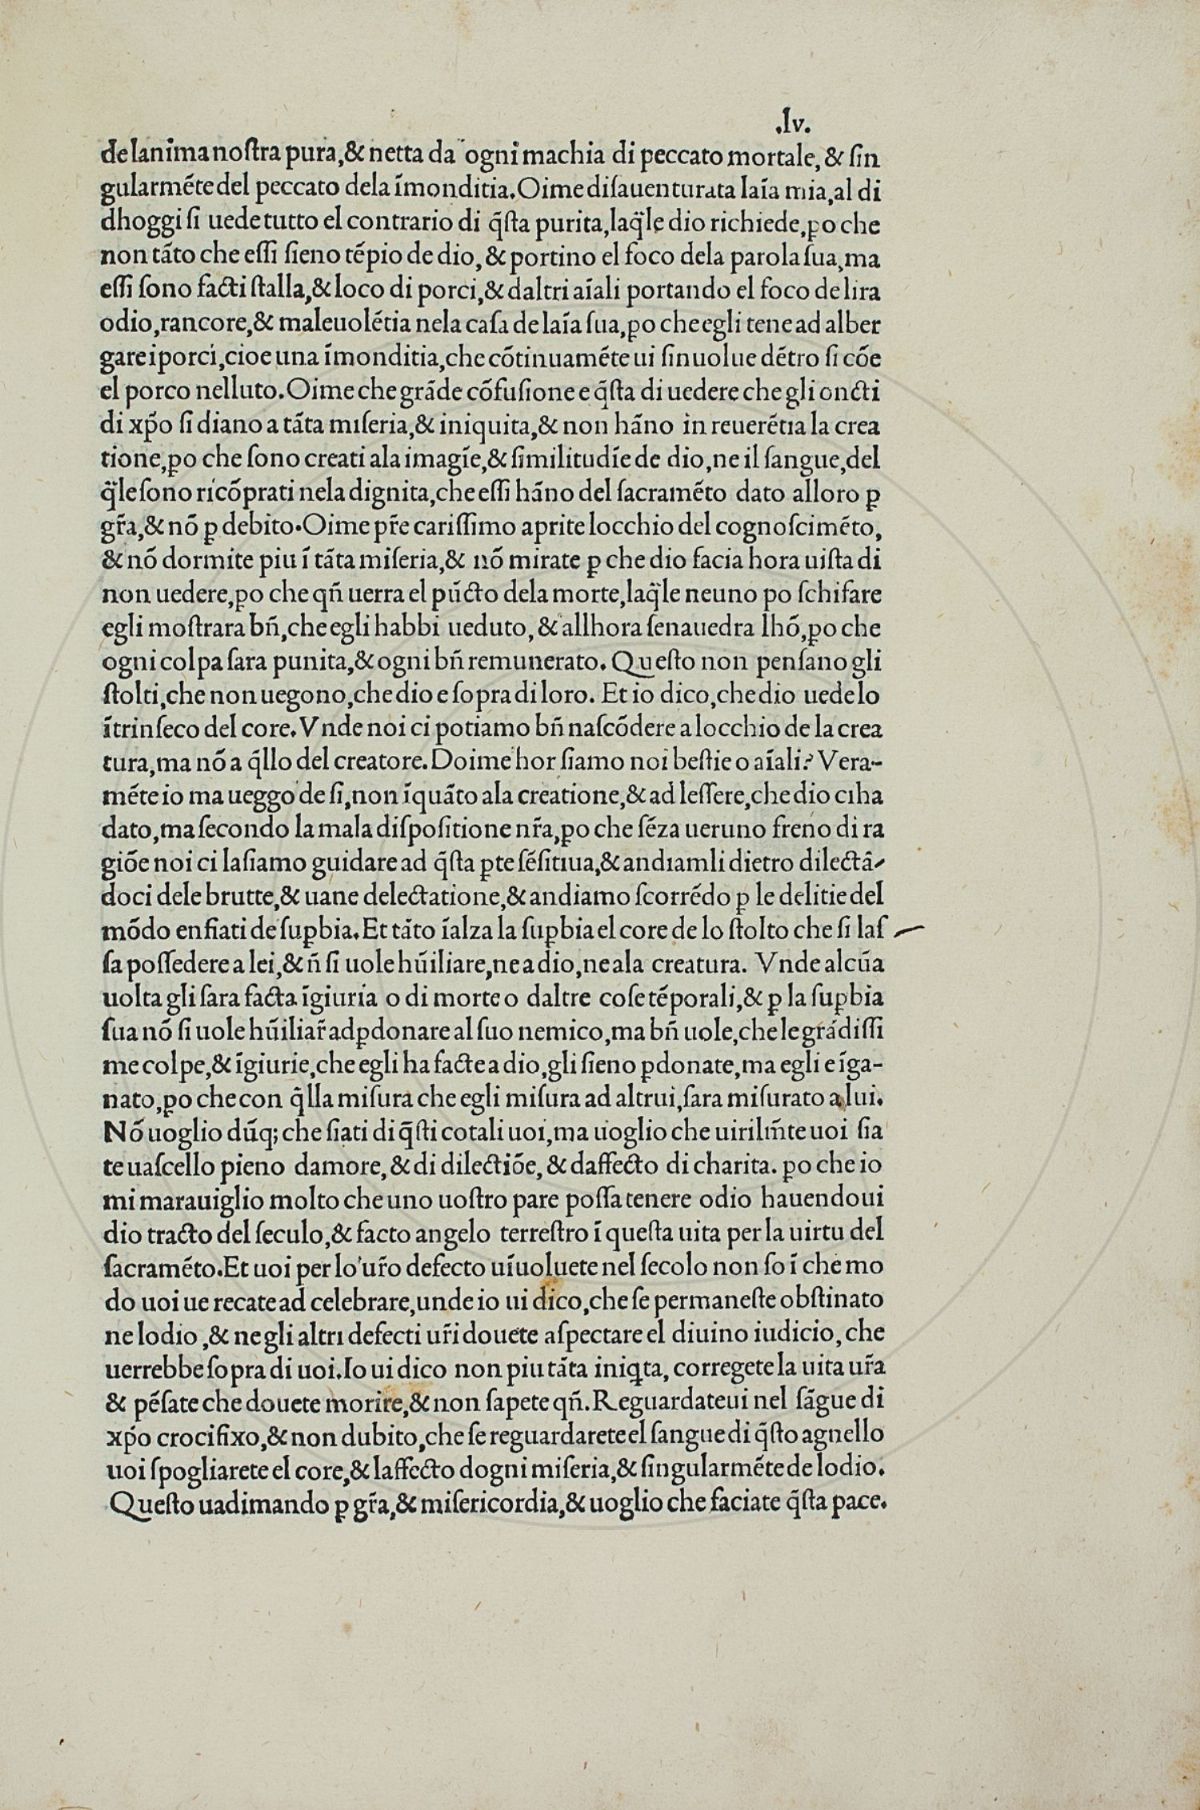 .lv.
de lanima noſtra pura,& netta da ogni machia di peccato mortale, & ſin
gularmẽte del peccato dela ĩmonditia. Oime diſauenturata laĩa mia,al di
dhoggi ſi uede tutto el contrario di q̃ſta purita,laq̃le dio richiede,ꝑo che
non tãto che eſſi ſieno tẽpio de dio, & portino el foco dela parola ſua,ma
eſſi ſono facti ſtalla,& loco di porci,& daltri aĩali portando el foco de lira
odio,rancore,& maleuolẽtia nela caſa de laĩa ſua,ꝑo che egli tene ad alber
gare i porci,cioe una ĩmonditia,che cõtinuamẽte ui ſinuolue dẽtro ſi cõe
el porco nelluto. Oime che grãde cõfuſione e q̃ſta di uedere che gli oncti
di xp̃o ſi diano a tãta miſeria,& iniquita,& non hãno in reuerẽtia la crea
tione,ꝑo che ſono creati ala imagĩe,& ſimilitudĩe de dio,ne il ſangue,del
q̃le ſono ricõprati nela dignita,che eſſi hãno del ſacramẽto dato alloro ꝑ
gr̃a,& nõ ꝑ debito. Oime pr̃e cariſſimo aprite locchio del cognoſcimẽto,
& nõ dormite piu ĩ tãta miſeria,& nõ mirate ꝑ che dio facia hora uiſta di
non uedere,ꝑo che qñ uerra el pũcto dela morte,laq̃le neuno po ſchifare
egli moſtrara bñ,che egli habbi ueduto, & allhora ſenauedra lhõ,ꝑo che
ogni colpa ſara punita,& ogni bñ remunerato. Queſto non penſano gli
ſtolti,che non uegono,che dio e ſopra di loro. Et io dico,che dio uede lo
ĩtrinſeco del core. Vnde noi ci potiamo bñ naſcõdere a locchio de la crea
tura,ma nõ a q̃llo del creatore. Doime hor ſiamo noi beſtie o aĩali? Vera-
mẽte io ma ueggo de ſi,non ĩquãto ala creatione,& ad leſſere,che dio ci ha
dato,ma ſecondo la mala diſpoſitione nr̃a,ꝑo che ſẽza ueruno freno di ra
giõe noi ci laſiamo guidare ad q̃ſta ꝑte ſẽſitiua,& andiamli dietro dilectã-
doci dele brutte,& uane delectatione,& andiamo ſcorrẽdo ꝑ le delitie del
mõdo enfiati de ſuꝑbia. Et tãto ĩalza la ſuꝑbia el core de lo ſtolto che ſi laſ
ſa poſſedere a lei,& ñ ſi uole hũiliare,ne a dio,ne ala creatura. Vnde alcũa
uolta gli ſara facta ĩgiuria o di morte o daltre coſe tẽporali,& ꝑ la ſuꝑbia
ſua nõ ſi uole hũiliar̃ ad ꝑdonare al ſuo nemico,ma bñ uole,che le grãdiſſi
me colpe,& ĩgiurie,che egli ha facte a dio,gli ſieno ꝑdonate,ma egli e ĩga-
nato,ꝑo che con q̃lla miſura che egli miſura ad altrui,ſara miſurato a lui.
Nõ uoglio dũq; che ſiati di q̃ſti cotali uoi,ma uoglio che uirilm̃te uoi ſia
te uaſcello pieno damore, & di dilectiõe, & daffecto di charita. ꝑo che io
mi marauiglio molto che uno uoſtro pare poſſa tenere odio hauendoui
dio tracto del ſeculo,& facto angelo terreſtro ĩ queſta uita per la uirtu del
ſacramẽto. Et uoi per lo ur̃o defecto uĩuoluete nel ſecolo non ſo ĩ che mo
do uoi ue recate ad celebrare,unde io ui dico,che ſe permaneſte obſtinato
ne lodio ,& ne gli altri defecti ur̃i douete aſpectare el diuino iudicio, che
uerrebbe ſopra di uoi. Io ui dico non piu tãta iniq̃ta, corregete la uita ur̃a
& pẽſate che douete morire,& non ſapete qñ. Reguardateui nel ſãgue di
xp̃o crocifixo,& non dubito,che ſe reguardarete el ſangue di q̃ſto agnello
uoi ſpogliarete el core,& laffecto dogni miſeria,& ſingularmẽte de lodio.
Queſto uadimando ꝑ gr̃a,& miſericordia,& uoglio che faciate q̃ſta pace.